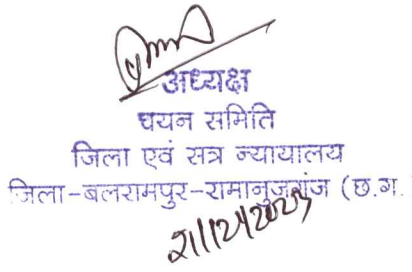 अध्यक्ष
चयन समिति
जिला एवं सत्र न्यायालय
जिला-बलरामपुर-रामानुजगंज (छ.ग.
21/12/2023